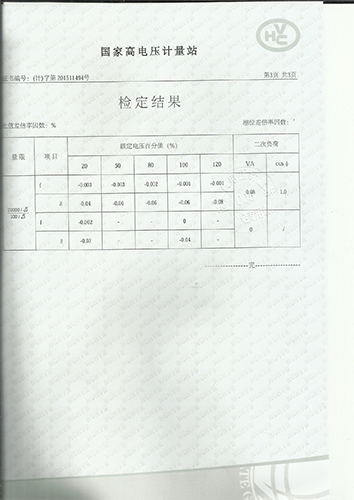 HVC
国家高电压计量站
证书编号：(计)字第201511494号
第3页 共3页
检定结果
比值差倍率因数：%
相位差倍率因数：′
量限 项目 额定电压百分值（%） 二次负荷
20 50 80 100 120 VA cosφ
f -0.003 -0.003 -0.002 -0.001 -0.001 1.0
δ -0.04 -0.06 -0.06 -0.06 -0.08
f -0.002 - - 0 - 0 /
δ -0.03 - - -0.04 -
完